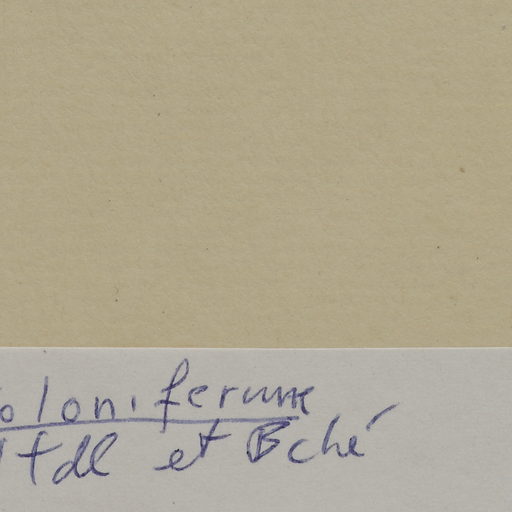 oloniferum
tdl et Bché